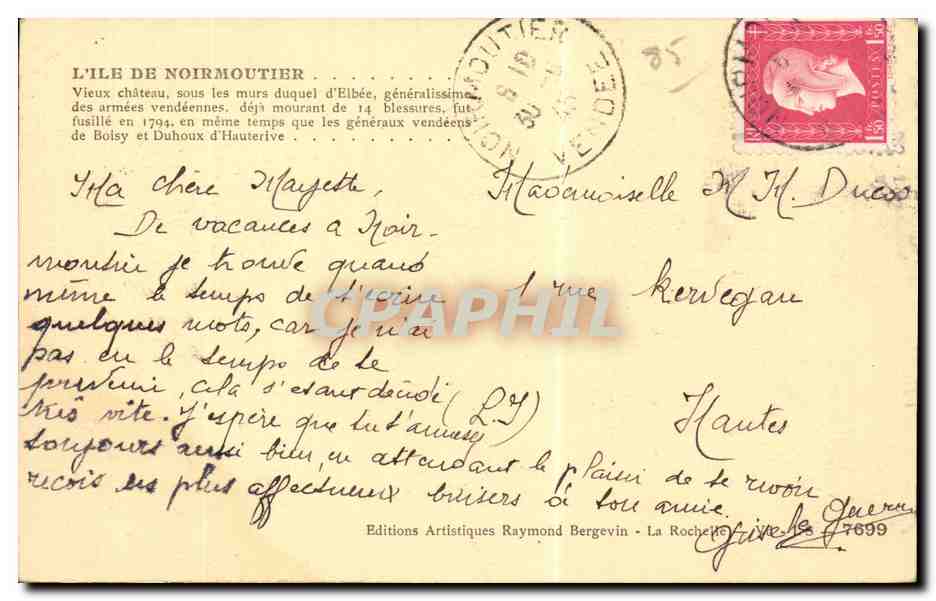 L'ILE DE NOIRMOUTIER . . . . . . . .
Vieux château, sous les murs duquel d'Elbée, généralissime
des armées vendéennes, déjà mourant de 14 blessures, fut
fusillé en 1794, en même temps que les généraux vendéens
de Boisy et Duhoux d'Hauterive . . . . . . . . . .
NOIRMOUTIER
VENDEE
85
1F50
POSTES
1F50
Ma chère Mayette,
De vacances a Noir-
moutier je trouve quand
même le temps de t'écrire
quelques mots, car je n'ai
pas eu le temps de te
prévenir, cela s'étant décidé
très vite. J'espère que tu t'amuses
toujours aussi bien, en attendant le plaisir de te revoir
reçois les plus affectueux baisers de ton amie.
Mademoiselle M M. Ducos
1 rue Kervegan
Nantes
CPAPHIL
Editions Artistiques Raymond Bergevin - La Rochelle
7699